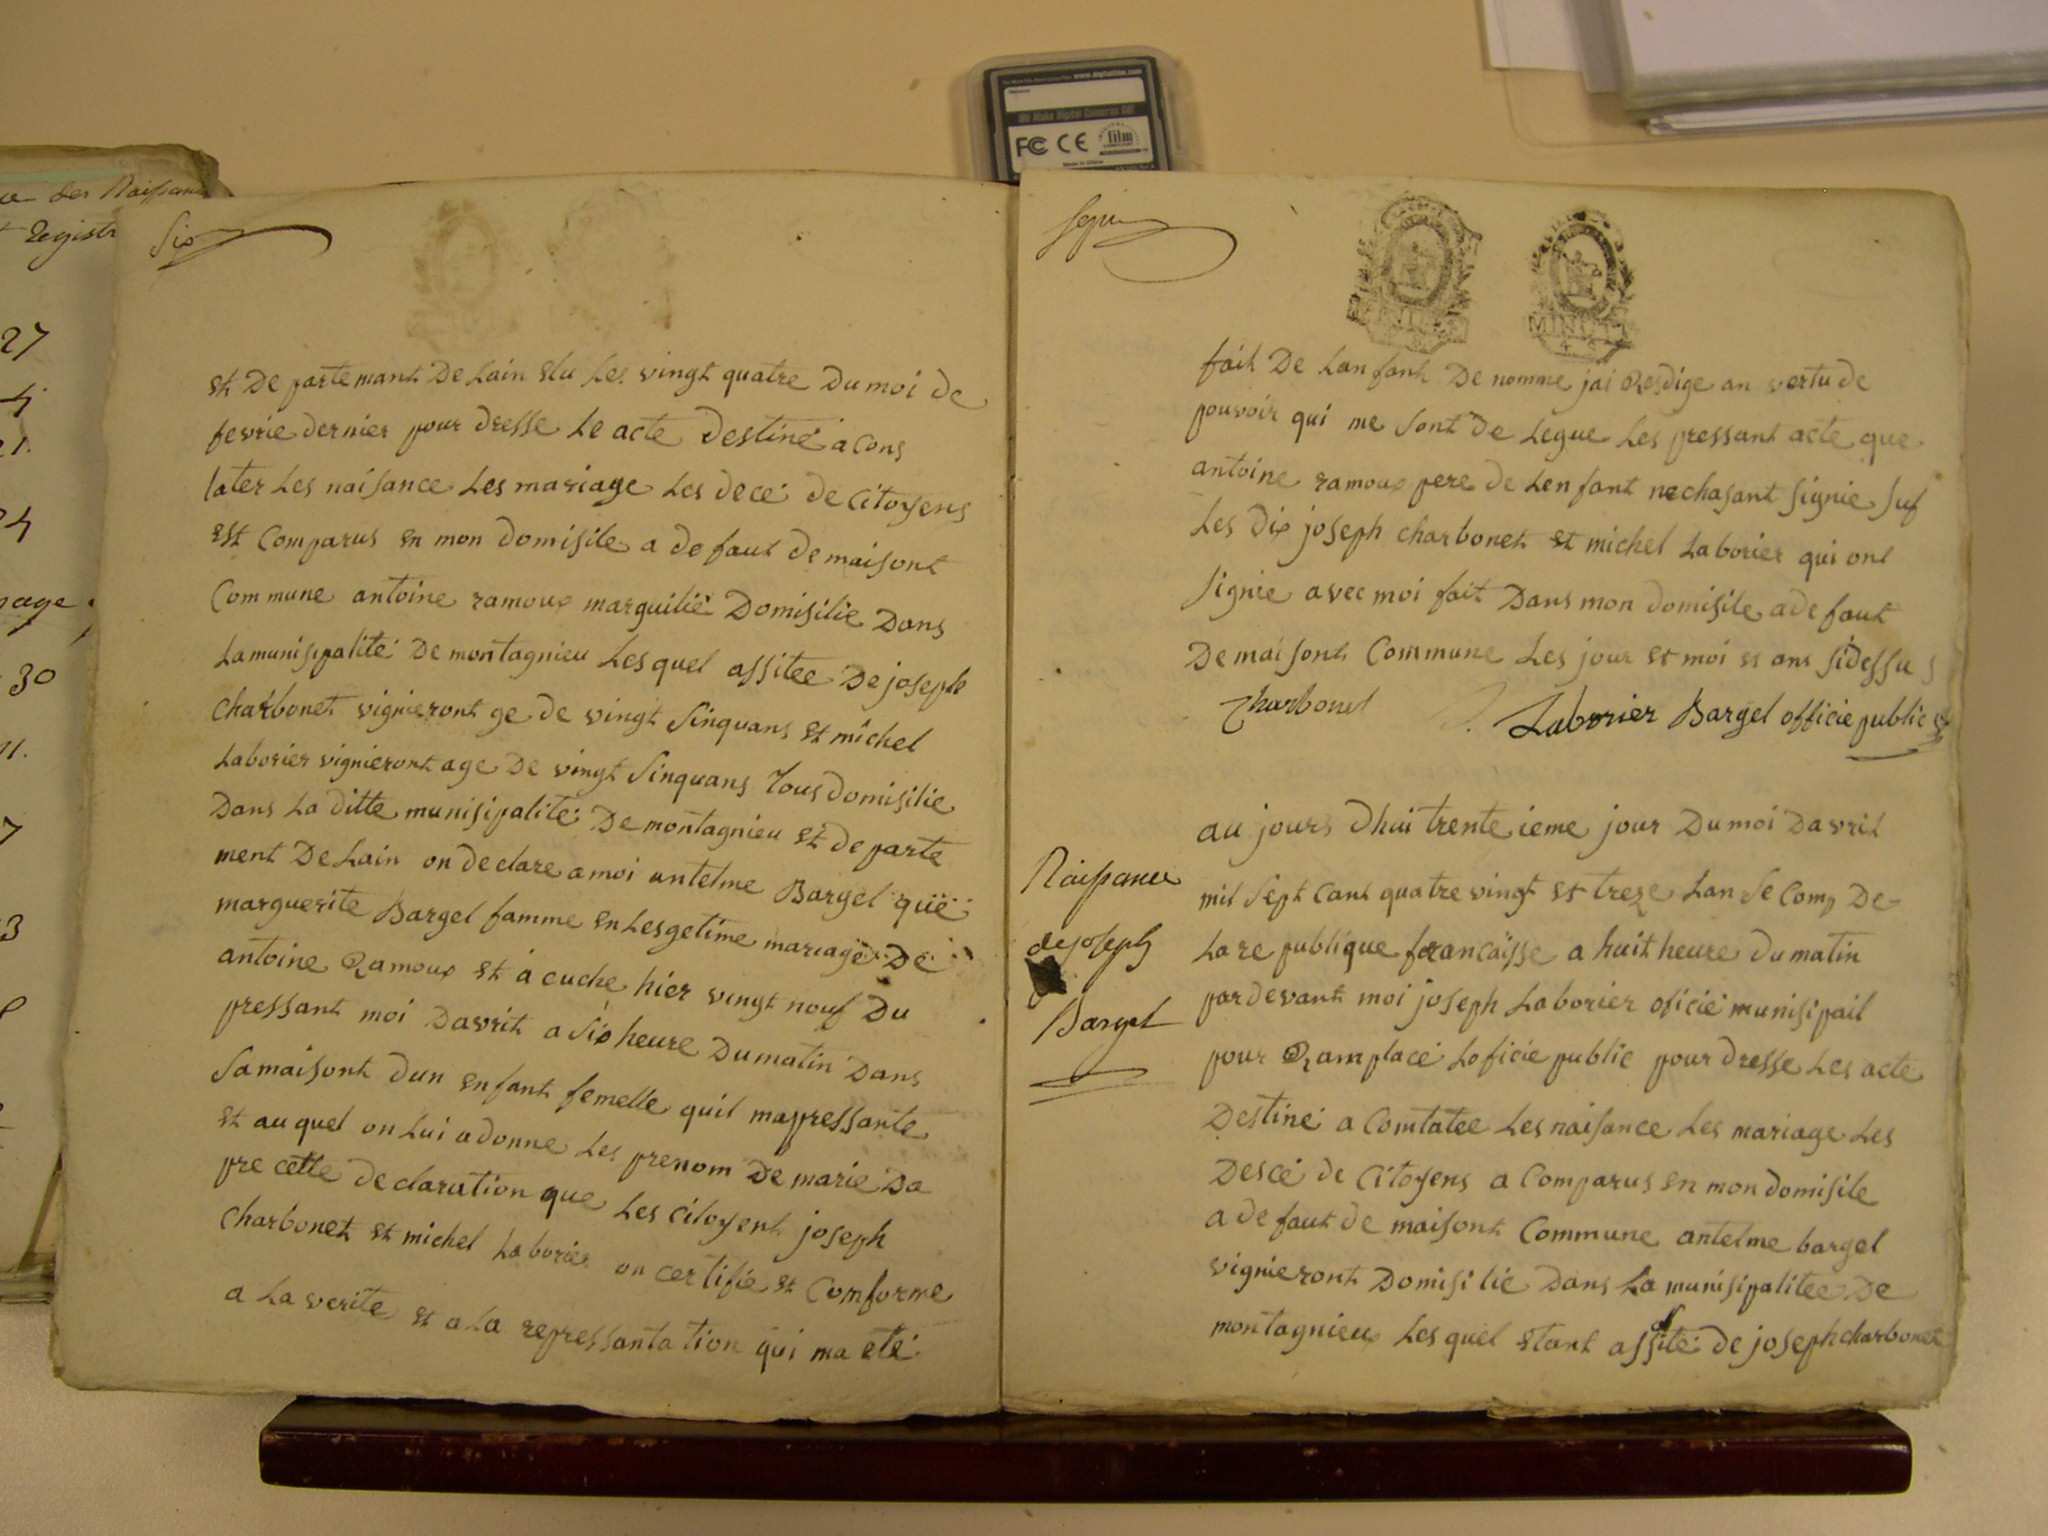 Six
et De partemant De Lain elu Les vingt quatre Du moi de
fevrie dernier pour dresse Le acte destiné a cons
tater Les naisance Les mariage Les decé de Citoyens
est Comparus en mon domisile a de faut de maisont
Commune antoine ramoux marguilié Domisilie Dans
La munisipalité De montagnieu Lesquel assitee De joseph
Charbonet vignieront ge de vingt sinquans et michel
Laborier vignieront age De vingt sinquans Tous domisilie
Dans La ditte munisipalité De montagnieu et departe
ment De Lain on declare a moi antelme Bargel que
marguerite Bargel famme en Lesgetime mariage De
antoine Ramoux et à cuche hier vingt nouf Du
pressant moi Davrit a six heure Du matin Dans
sa maisont dun enfant femelle quil mapressante
et au quel on Lui a donne Les prenom De marie Da
pre cette declaration que Les citoyent joseph
Charbonet et michel Laborier on certifié et Comforme
a La verite et a La repressantation qui ma eté
Sept
MINUTE
fait De Lanfant De nomme jai Resdige an vertu de
pouvoir qui me sont de Legue Les pressant acte que
antoine ramoux pere de Lenfant nechasant signie suf
Les dix joseph charbonet et michel Laborier qui ont
signie avec moi fait Dans mon domisile a de faut
De maisont Commune Les jour et moi et ans sidessus
Charbonet Laborier Bargel officie public
au jours dhui trente ieme jour Du moi Davril
mil sept cant quatre vingt et treze Lan se Comp De
La re publique francaisse a huit heure du matin
pardevant moi joseph Laborier oficié munisipail
pour Ramplacé Loficie public pour dresse Les acte
Destiné a Comtatee Les naisance Les mariage Les
Descé de Citoyens a Comparus en mon domisile
a de faut de maisont Commune antelme bargel
vignieront Domisilié Dans La munisipalitee De
montagnieux Lesquel etant assité de joseph charbonet
Naissance
de joseph
Bargel
27
24
page
30
FC CE film